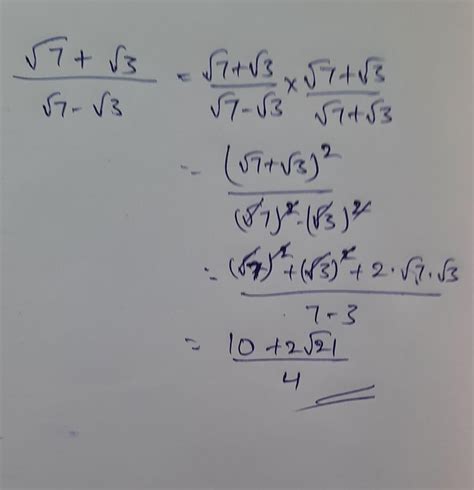 (√7 + √3)/(√7 - √3) = (√7+√3)/(√7-√3) × (√7+√3)/(√7+√3)
= (√7+√3)²/((√7)²-(√3)²)
= ((√7)²+(√3)²+2·√7·√3)/(7-3)
= (10+2√21)/4